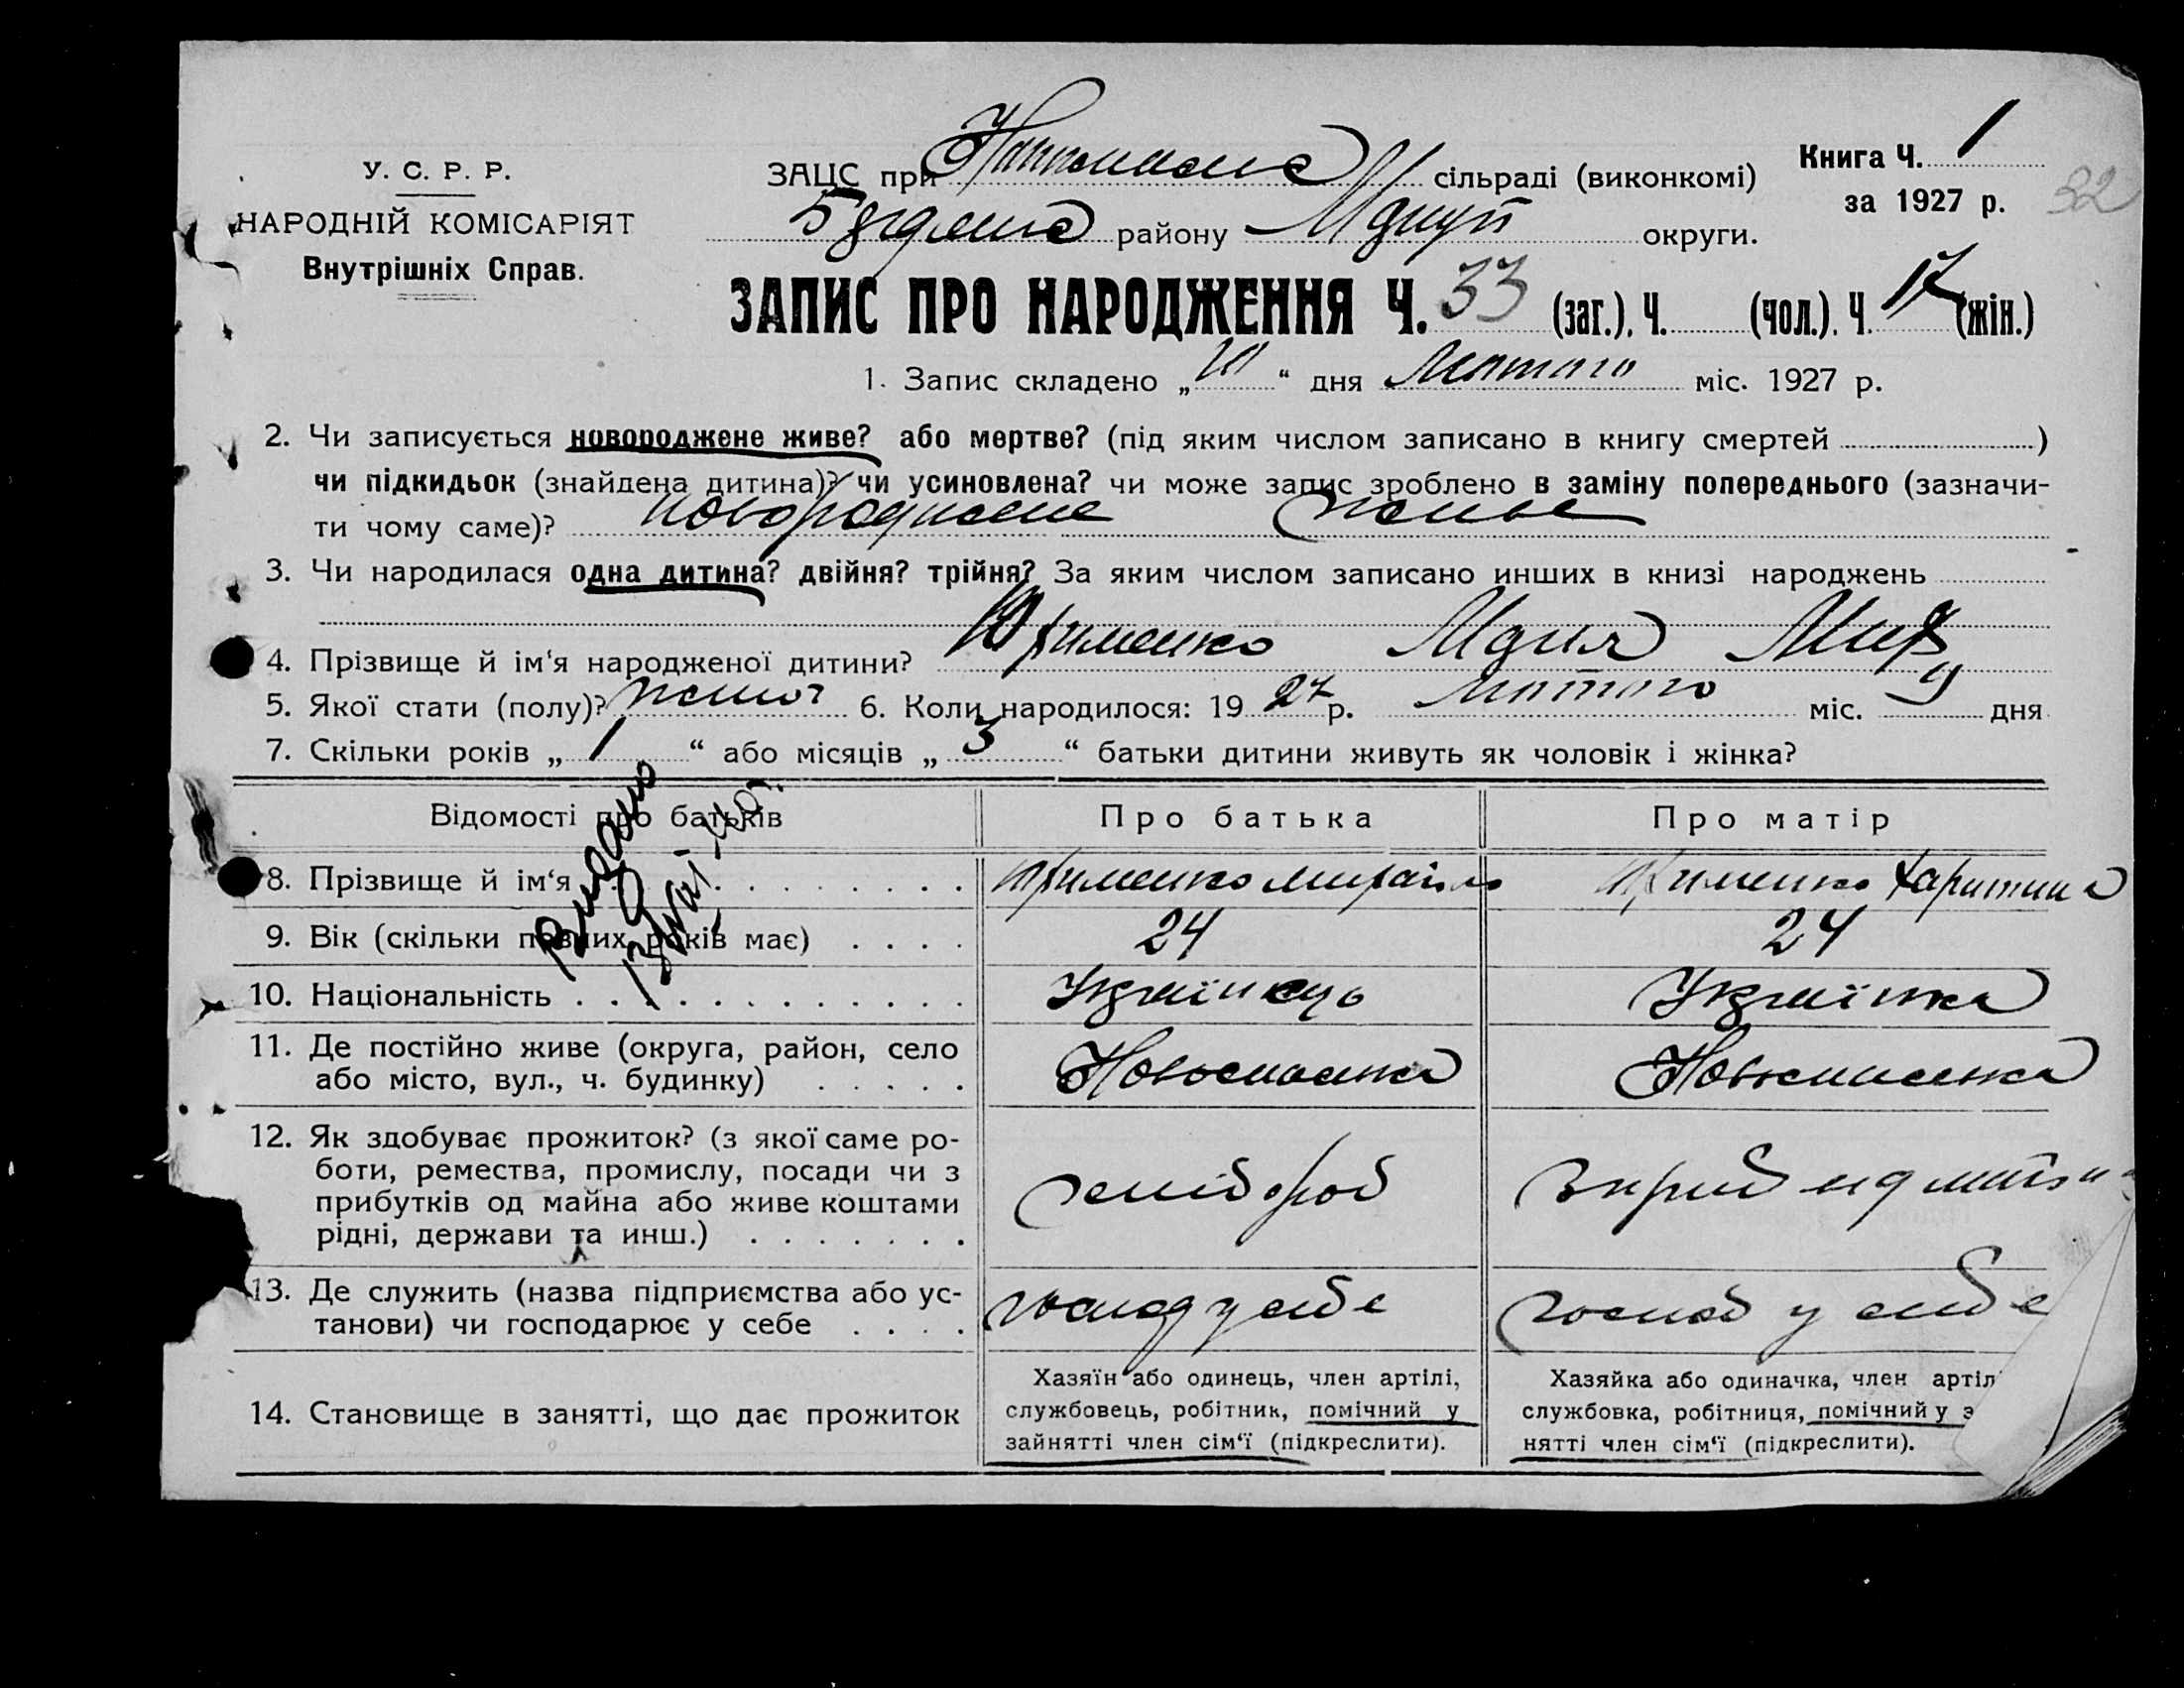 У. С. Р. Р.
НАРОДНІЙ КОМІСАРІЯТ
Внутрішніх Справ.
ЗАЦС при сільраді (виконкомі)
району округи.
Книга Ч. 1
за 1927 р.
32
ЗАПИС ПРО НАРОДЖЕННЯ Ч. 33 (заг.). Ч. (чол.). Ч. 17 (жін.)
1. Запис складено „10“ дня Лютого міс. 1927 р.
2. Чи записується новороджене живе? або мертве? (під яким числом записано в книгу смертей )
чи підкидьок (знайдена дитина)? чи усиновлена? чи може запис зроблено в заміну попереднього (зазначи-
ти чому саме)? новороджене живе
3. Чи народилася одна дитина? двійня? трійня? За яким числом записано инших в книзі народжень
4. Прізвище й ім‘я народженої дитини?
5. Якої стати (полу)? жіноч 6. Коли народилося: 1927 р. Лютого міс. 9 дня
7. Скільки років „ 1 “ або місяців „ 3 “ батьки дитини живуть як чоловік і жінка?
Відомості про батьків Про батька Про матір
Видано
8. Прізвище й ім‘я Михайло Харитина
9. Вік (скільки повних років має) 24 24
10. Національність Українець Українка
11. Де постійно живе (округа, район, село
або місто, вул., ч. будинку) Новоспаська Новоспаська
12. Як здобуває прожиток? (з якої саме ро-
боти, ремества, промислу, посади чи з
прибутків од майна або живе коштами
рідні, держави та инш.) хлібороб
13. Де служить (назва підприємства або ус-
танови) чи господарює у себе господ у себе господ у себе
14. Становище в занятті, що дає прожиток
Хазяїн або одинець, член артілі,
службовець, робітник, помічний у
зайнятті член сім‘ї (підкреслити).
Хазяйка або одиначка, член артіл
службовка, робітниця, помічний у з
нятті член сім‘ї (підкреслити).